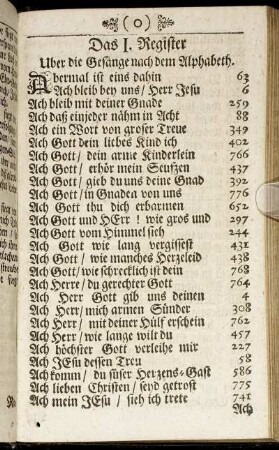 (o)
Das I. Register
Uber die Gesänge nach dem Alphabeth.
Abermal ist eins dahin 63
Ach bleib bey uns/ Herr Jesu 6
Ach bleib mit deiner Gnade 259
Ach daß einjeder nähm in Acht 88
Ach ein Wort von groser Treue 349
Ach Gott dein liebes Kind ich 402
Ach Gott/ dein arme Kinderlein 766
Ach Gott/ erhör mein Seufzen 437
Ach Gott/ gieb du uns deine Gnad 392
Ach Gott/ in Gnaden von uns 776
Ach Gott thu dich erbarmen 652
Ach Gott und HErr! wie gros und 297
Ach Gott vom Himmel sieh 244
Ach Gott wie lang vergissest 431
Ach Gott/ wie manches Herzeleid 438
Ach Gott/ wie schrecklich ist dein 768
Ach Herre/ du gerechter Gott 764
Ach Herr Gott gib uns deinen 4
Ach Herr/ mich armen Sünder 308
Ach Herr/ mit deiner Hülf erschein 762
Ach Herr/ wie lange wilt du 457
Ach höchster Gott verleihe mir 227
Ach JEsu dessen Treu 58
Ach komm/ du süser Herzens-Gast 586
Ach lieben Christen/ seyd getrost 775
Ach mein JEsu/ sieh ich trete 741
Ach